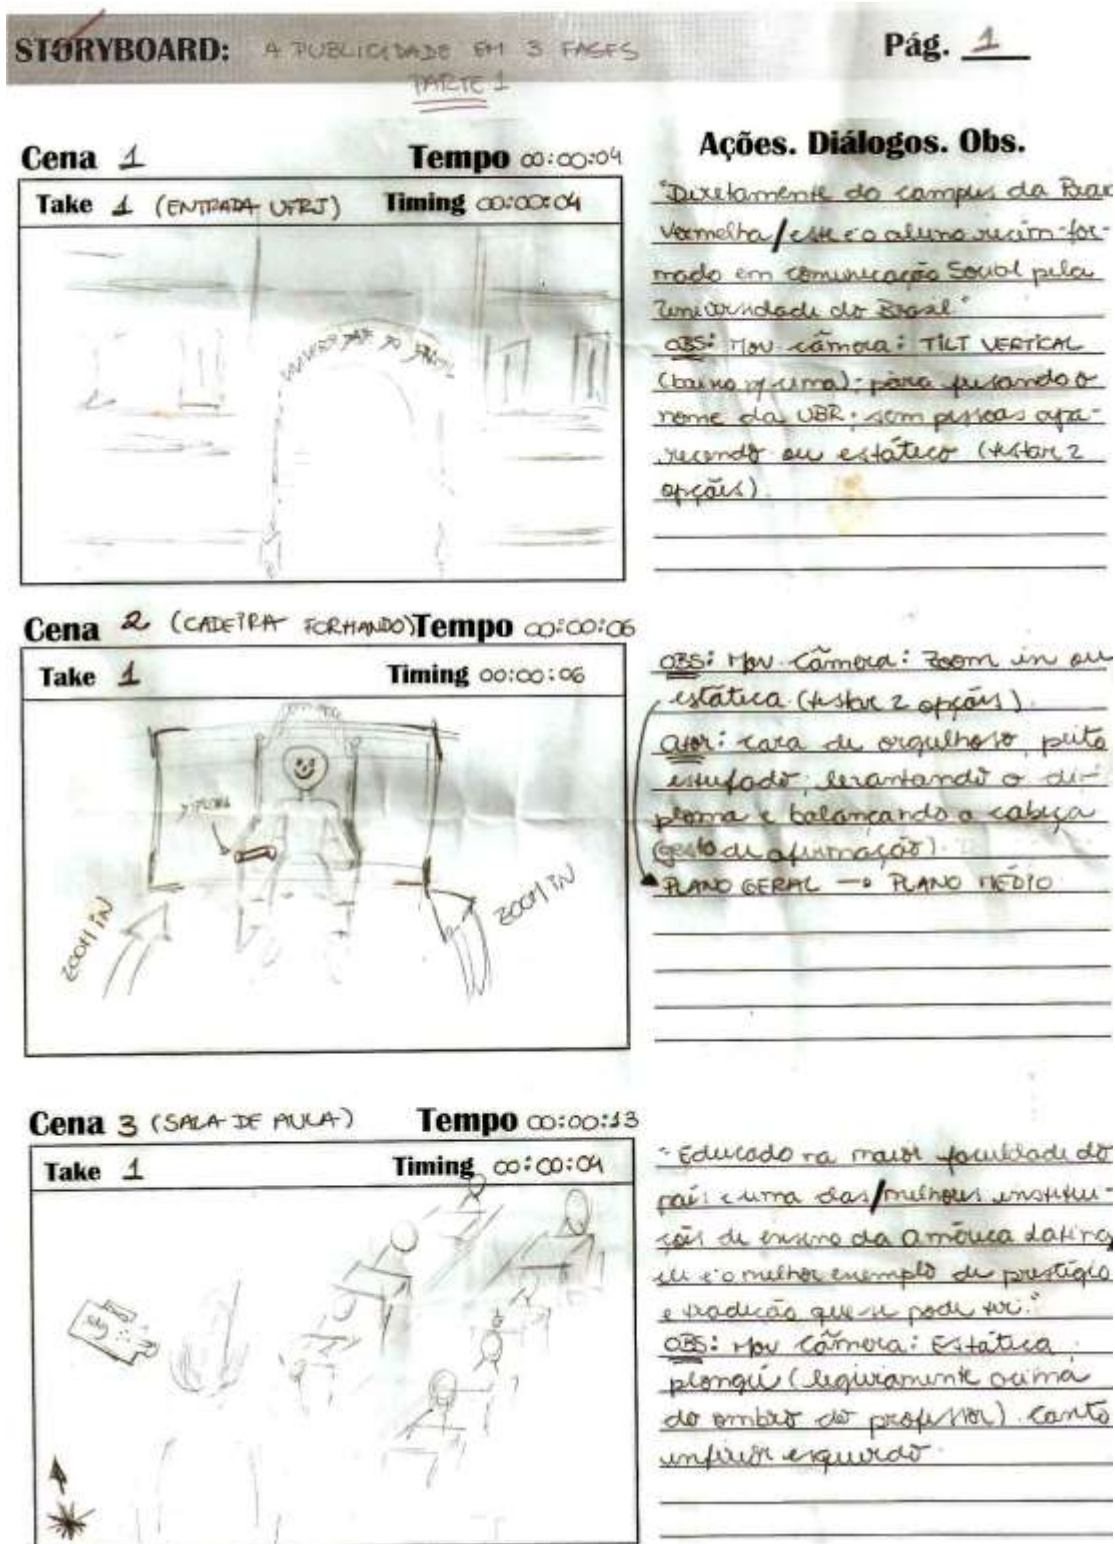 STORYBOARD: A PUBLICIDADE EM 3 FASES
PARTE 1
Pág. 1
Cena 1 Tempo 00:00:04
Take 1 (ENTRADA UFRJ) Timing 00:00:04
UNIVERSIDADE DO BRASIL
Ações. Diálogos. Obs.
"Diretamente do campus da Praia
Vermelha/este é o aluno recém-for-
mado em comunicação Social pela
Universidade do Brasil."
OBS: Mov. câmera: TILT VERTICAL
(baixo p/ cima); para focando o
nome da UBR; sem pessoas apa-
recendo ou estático (testar 2
opções).
Cena 2 (CADEIRA FORMANDO) Tempo 00:00:06
Take 1 Timing 00:00:06
DIPLOMA
ZOOM IN
ZOOM IN
OBS: Mov. Câmera: Zoom in ou
estática (testar 2 opções)
Ator: cara de orgulhoso, peito
estufado, levantando o di-
ploma e balançando a cabeça
(gesto de afirmação).
PLANO GERAL → PLANO MÉDIO
Cena 3 (SALA DE AULA) Tempo 00:00:13
Take 1 Timing 00:00:04
"Educado na maior faculdade do
país e uma das/melhores institui-
ções de ensino da América Latina,
ele é o melhor exemplo de prestígio
e tradição que se pode ter."
OBS: Mov Câmera: Estática,
plongê (ligeiramente acima
do ombro do professor). Canto
inferior esquerdo.